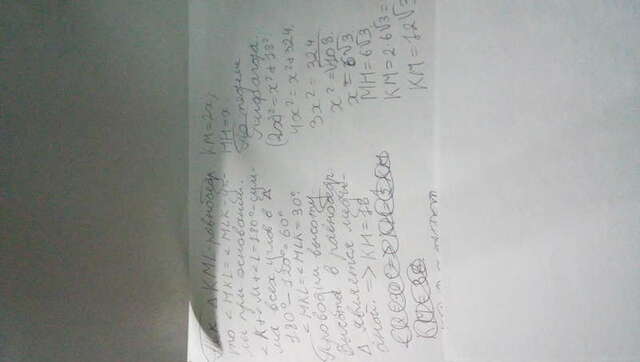 Так как Δ KML-равнобедр.
то ∠MKL=∠MLK=уг-
лы при основании.
∠K+∠M+∠L=180°-сум-
ма всех углов в Δ
180°-120°=60°
∠MKL=∠MLK=30°
Проводим высоту.
Высота в равнобедр.
Δ является меди-
аной. => KH=18
KM=2x,
MH=x
По теореме
Пифагора.
(2x)²=x²+18²
4x²=x²+324
3x²=324
x²=108
x=6√3
MH=6√3
KM=2·6√3=
KM=12√3